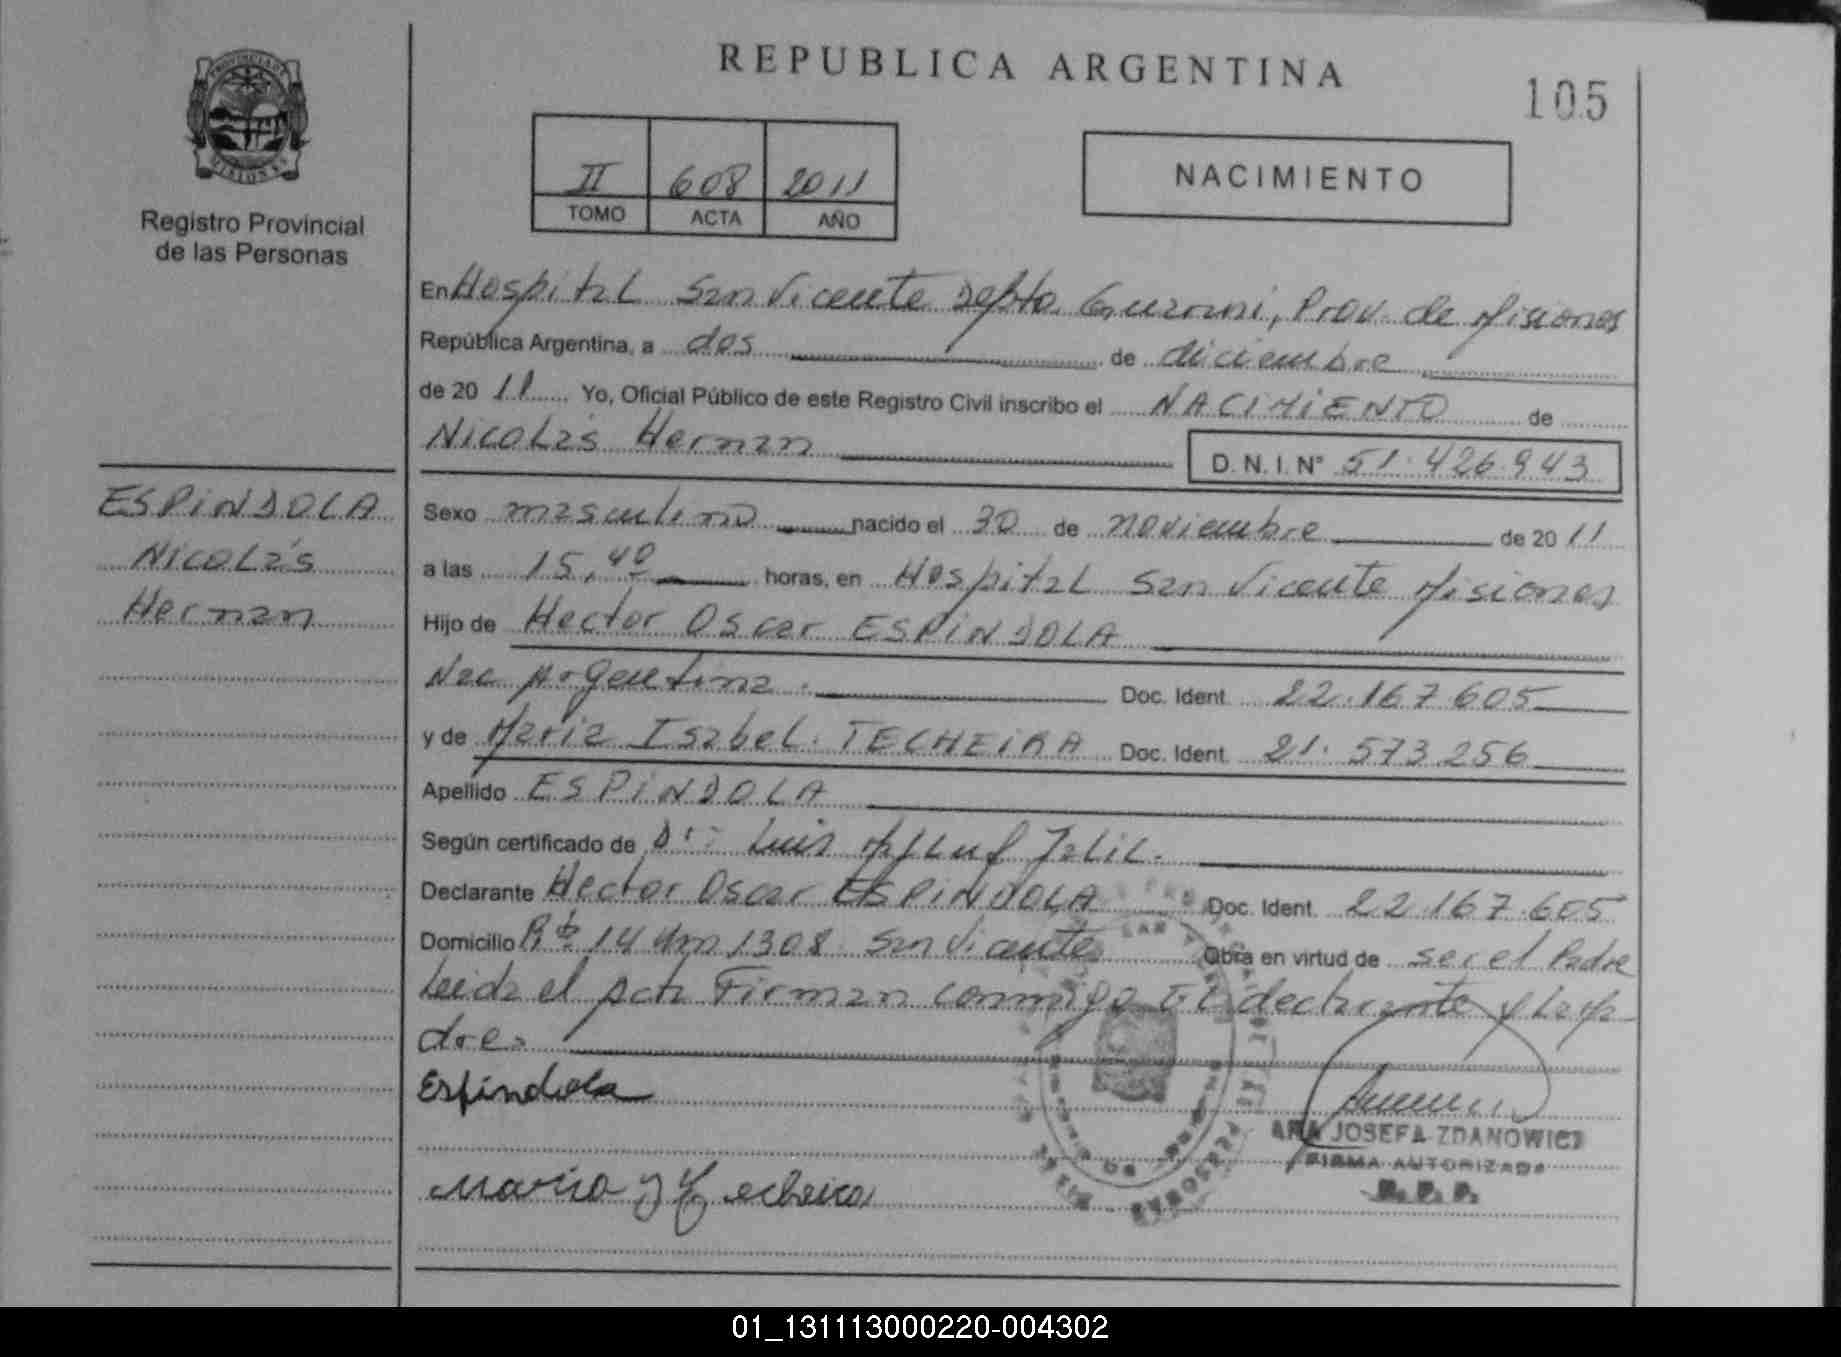 REPUBLICA ARGENTINA
105
PROVINCIA DE
MISIONES
Registro Provincial
de las Personas
II 608 2011
TOMO ACTA AÑO
NACIMIENTO
En Hospital San Vicente Depto. Guarani, Prov. de Misiones
República Argentina, a dos de diciembre
de 2011 Yo, Oficial Público de este Registro Civil inscribo el NACIMIENTO de
Nicolás Hernan D. N. I. N° 51.426.943
ESPINDOLA
Nicolás
Hernan
Sexo masculino nacido el 30 de noviembre de 2011
a las 15,40 horas, en Hospital San Vicente Misiones
Hijo de Hector Oscar ESPINDOLA
Nac Argentina. Doc. Ident. 22.167.605
y de Maria Isabel. TECHEIRA Doc. Ident. 21.573.256
Apellido ESPINDOLA
Según certificado de Dr: Luis Jalil.
Declarante Hector Oscar ESPINDOLA Doc. Ident. 22.167.605
Domicilio Rta 14 Km 1308 San Vicente Obra en virtud de ser el Padre
Leida el Acta Firman conmigo el declarante y la Ma-
dre=
Espindola
JOSEFA ZDANOWICZ
FIRMA AUTORIZADA
R. P. P.
Maria Y Techeira
01_131113000220-004302